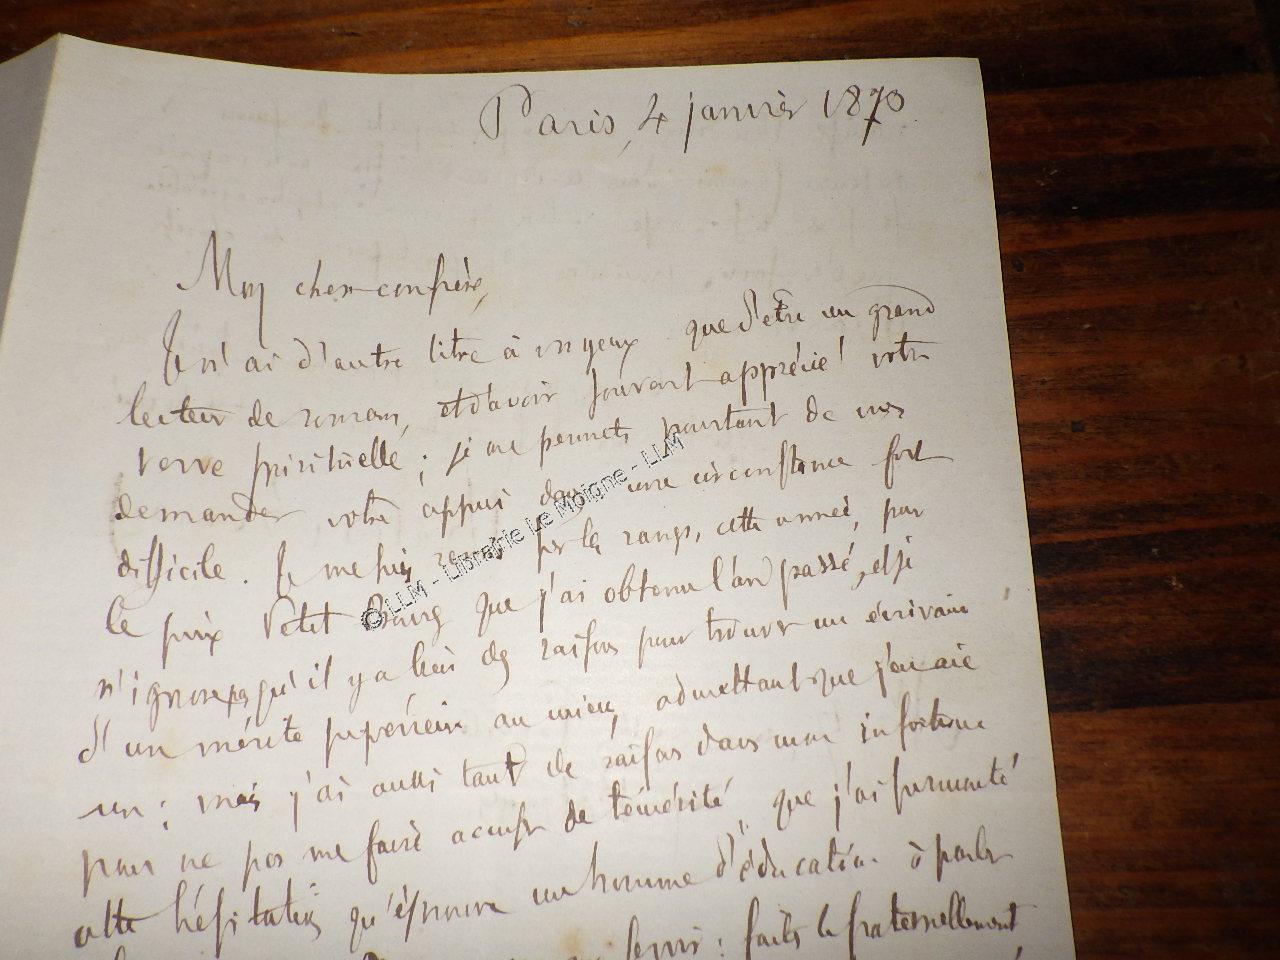 Paris, 4 janvier 1870
Mon cher confrère,
Je n'ai d'autre titre à vos yeux que d'être un grand
lecteur de romans, et d'avoir souvent apprécié votre
verve spirituelle ; je me permets pourtant de vous
demander votre appui dans une circonstance fort
difficile. Je me suis remis sur les rangs, cette année, pour
le prix Petit Bourg que j'ai obtenu l'an passé, et je
n'ignore pas qu'il y a bien des raisons pour trouver un écrivain
d'un mérite supérieur au mien, admettant que j'en aie
un ; mais j'ai aussi tant de raisons dans mon infortune
pour ne pas me faire accuser de témérité, que j'ai surmonté
cette hésitation qu'éprouve un homme d'éducation à parler
faites le fraternellement
©LLM - Librairie Le Moigne - LLM